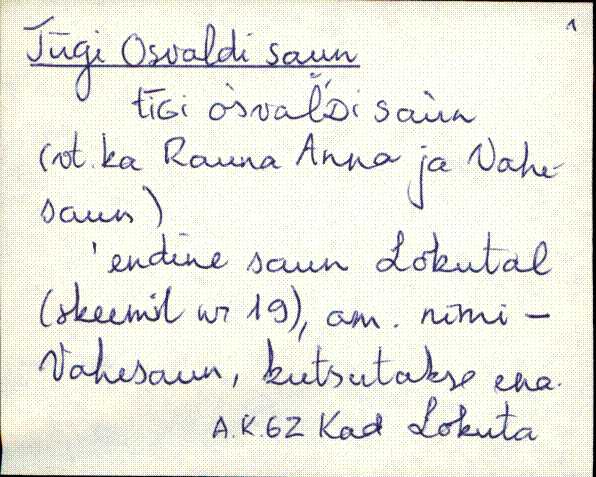 1
Tiigi Osvaldi saun
tīGi òsvaľDi saùn
(vt. ka Rauna Anna ja Vahe-
saun)
'endine saun Lokutal
(skeemil nr 19), am. nimi –
Vahesaun, kutsutakse ena.
A.K. 62 Kad Lokuta